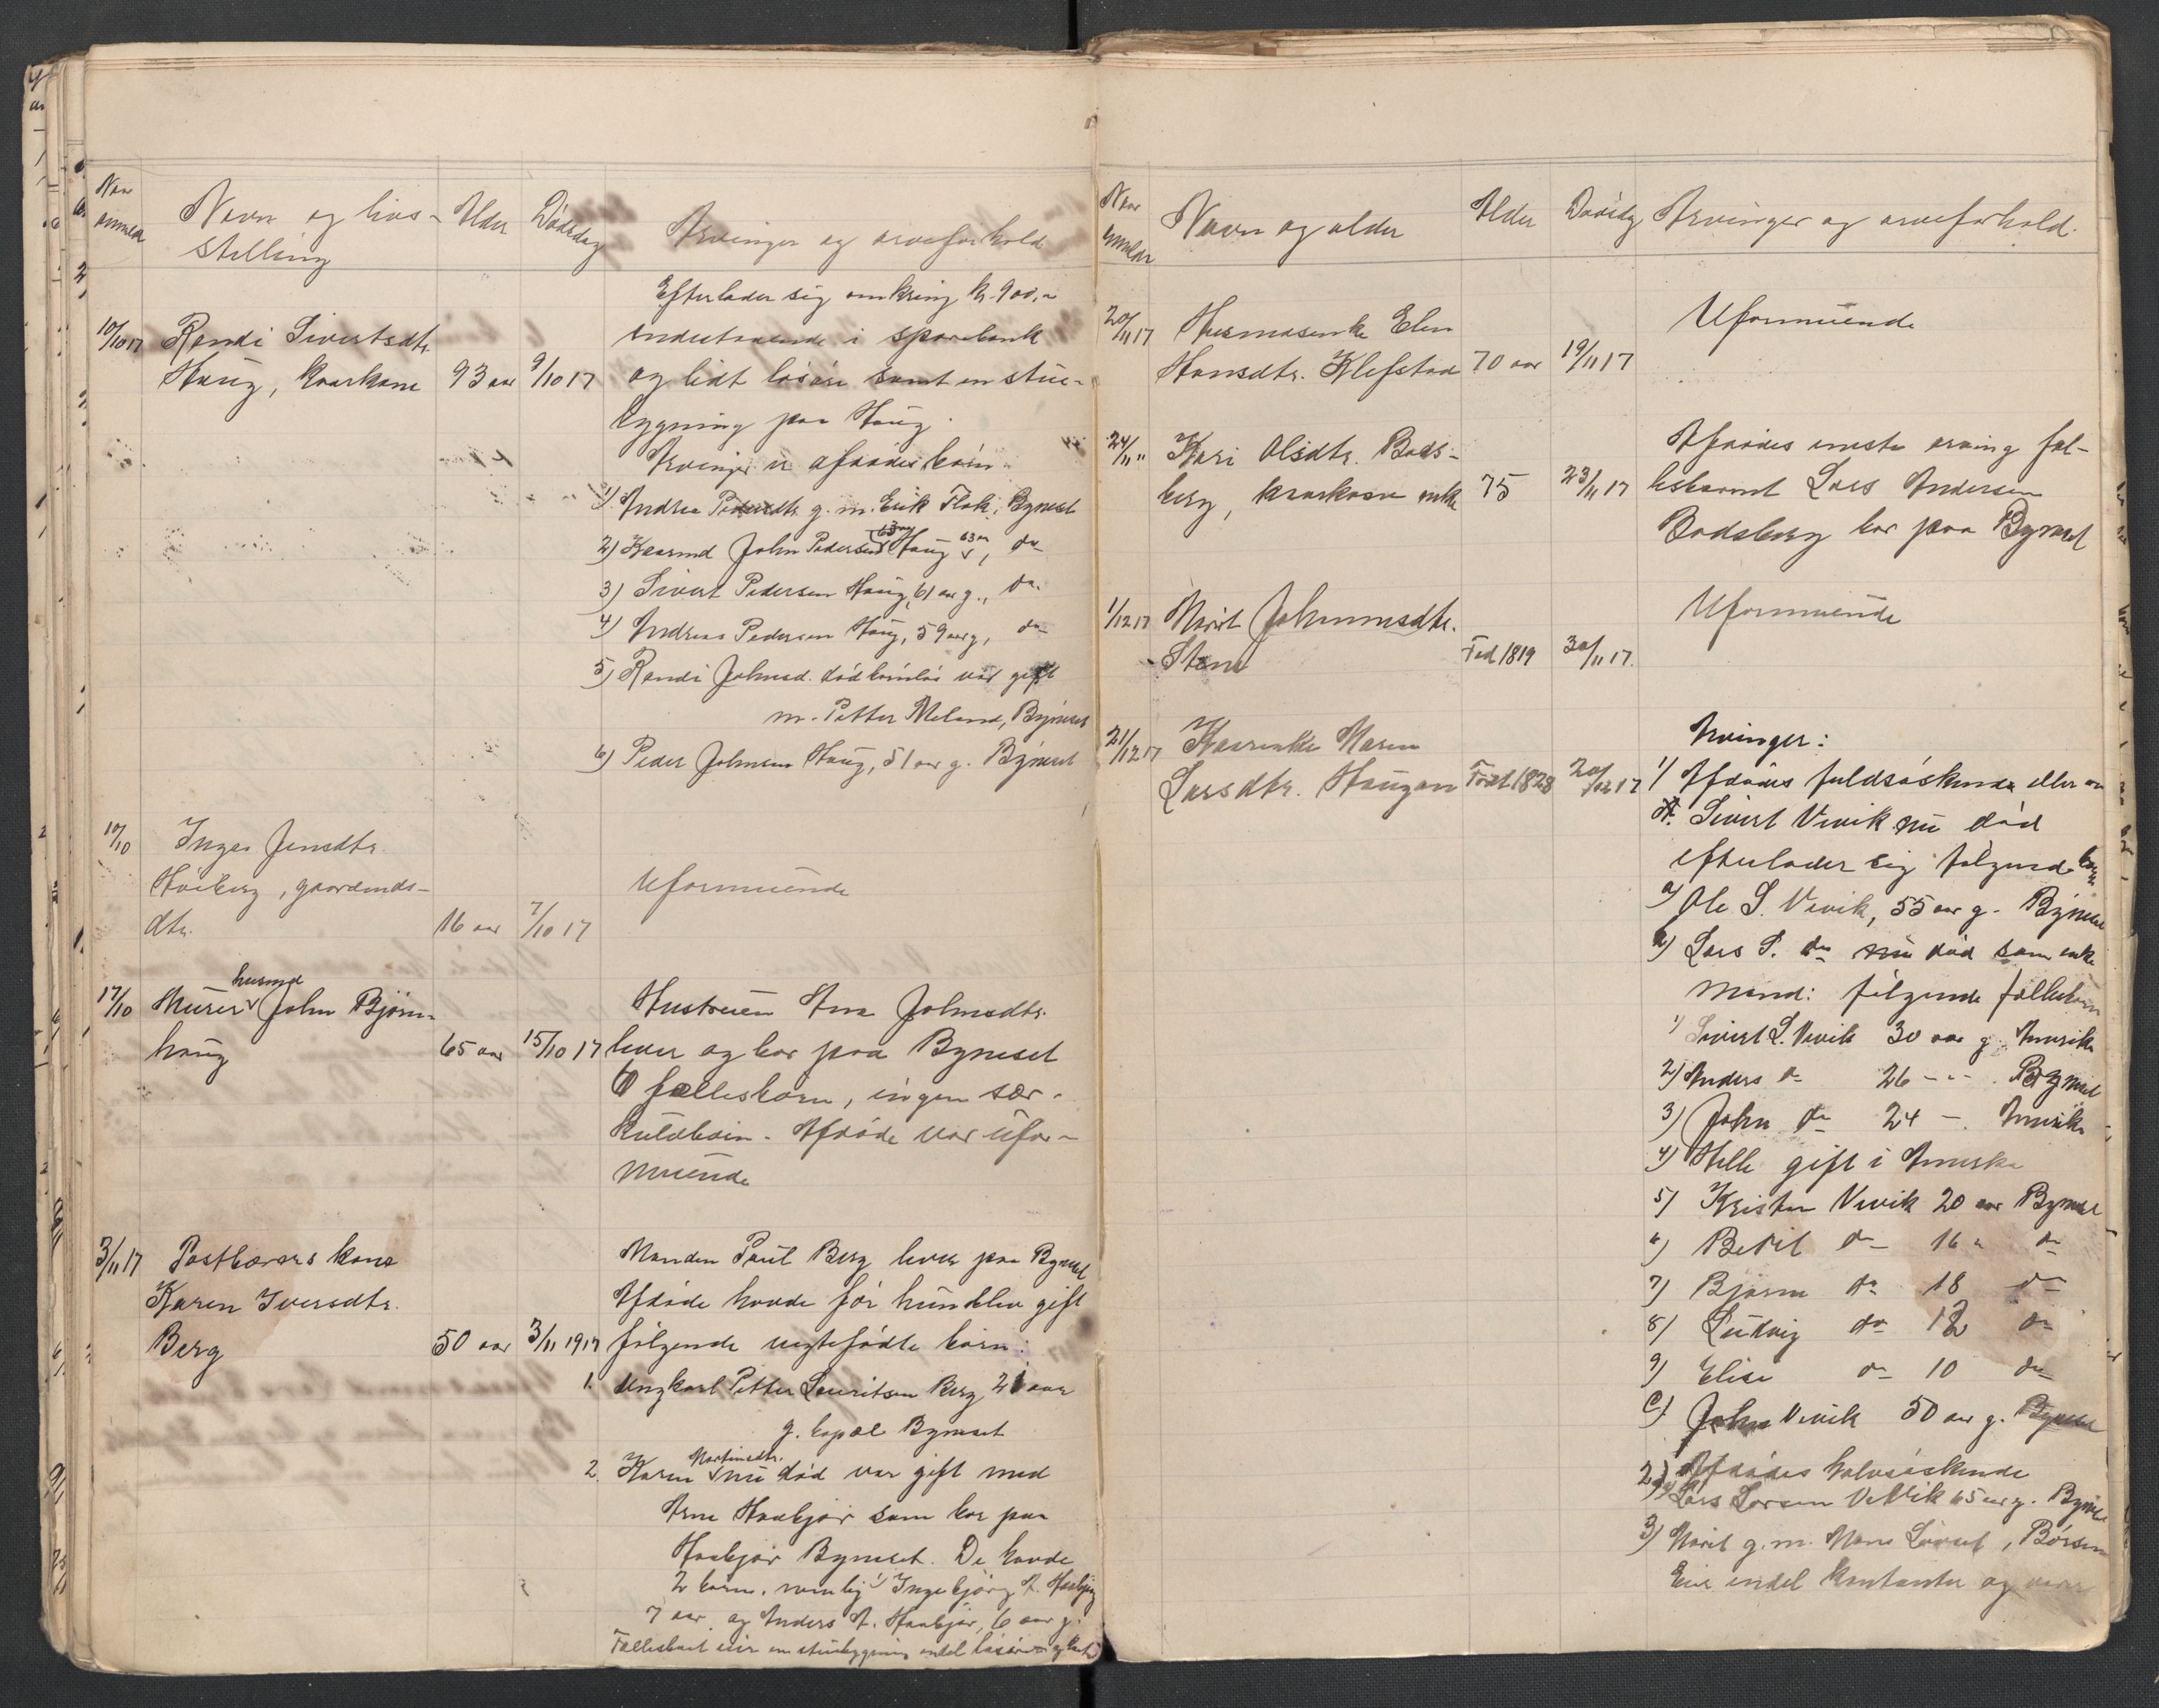 Naar anmeldt
Navn og livs-
stilling
Alder
Dødsdag
Arvinger og arveforhold
Efterlader sig omkring kr. 900,-
10/10 17 Randi Sivertsdtr. indestaaende i sparebank
Haug, kaarkone 93 aar 9/10 17 og lidt løsøre samt en stue-
bygning paa Haug.
Arvinger er afdødes børn:
1) Andrea Pedersdtr. g. m. Erik Flak, Bynesset
2) Kaarmd John Pedersen Haug 63 aar, do
3) Sivert Pedersen Haug, 61 aar g., do.
4) Andreas Pedersen Haug, 59 aar g, do
5) Randi Johnsd. død barnløs var gift
m. Petter Meland, Bynesset
6) Peder Johnsen Haug, 51 aar g. Bynesset
10/10 Inger Jensdtr.
Høiberg, gaardmds- Uformuende
dtr. 16 aar 7/10 17
husmd
17/10 Murer John Bjørn- Hustruen Ane Johnsdtr.
haug 65 aar 15/10 17 lever og bor paa Bynesset
6 fællesbørn, ingen sær-
kuldbørn. Afdøde var ufor-
muende
3/11 17 Postbærers kone Manden Paul Berg lever paa Bynesset
Karen Iversdtr. Afdøde havde før hun blev gift
Berg 50 aar 3/11 1917 følgende uegtefødte børn:
1. Ungkarl Petter Lauritsen Berg 21 aar
g. bopæl Bynesset
Martinsdtr.
2. Karen nu død var gift med
Arne Haabjør som bor paa
Haabjør Bynesset. De havde
2 børn, nemlig 1) Ingebjørg A. Haabjør
7 aar og Anders A. Haabjør, 6 aar g.
Fællesboet eier en stuebygning endel løsøre
Naar anmeldt
Navn og alder
Alder
Dødsdag
Arvinger og arveforhold.
20/11 17 Husmdsenke Elen Uformuende
Hansdtr. Klefstad 70 aar 19/11 17
24/11 " Kari Olsdtr. Bods- Afdødes eneste arving fæl-
berg, kaarkone enke 75 23/11 17 lesbarnet Lars Andersen
Bodsberg bor paa Bynesset
1/12 17 Marit Johannesdtr. Uformuende
Stene Fød 1819 30/11 17.
21/12 17 Kaarenke Maren Arvinger:
Larsdtr. Haugan Født 1828 20/12 17 1) Afdødes fuldsøskende eller
A. Sivert Vevik nu død
efterlader sig følgende børn
a) Ole S. Vevik, 55 aar g. Bynesset
b) Lars S. do nu død som enke
mand: følgende fællesbørn
1) Sivert L. Vevik 30 aar g. Amerika
2) Anders do 26 - - . Bynesset
3) John do 24 -. Amerika
4) Helle gift i Amerika
5) Kristen Vevik 20 aar Bynesset
6) Beret do 16 " do
7) Bjørn do 18 do
8) Ludvig do 12 do
9) Elise do 10 do
C). John Vevik 50 aar g. Bynesset
2) Afdødes halvsøskende
Lars Larsen Vevik 65 aar g. Bynesset
3) Marit g. m. Hans , Børsen
Eier endel kontanter og